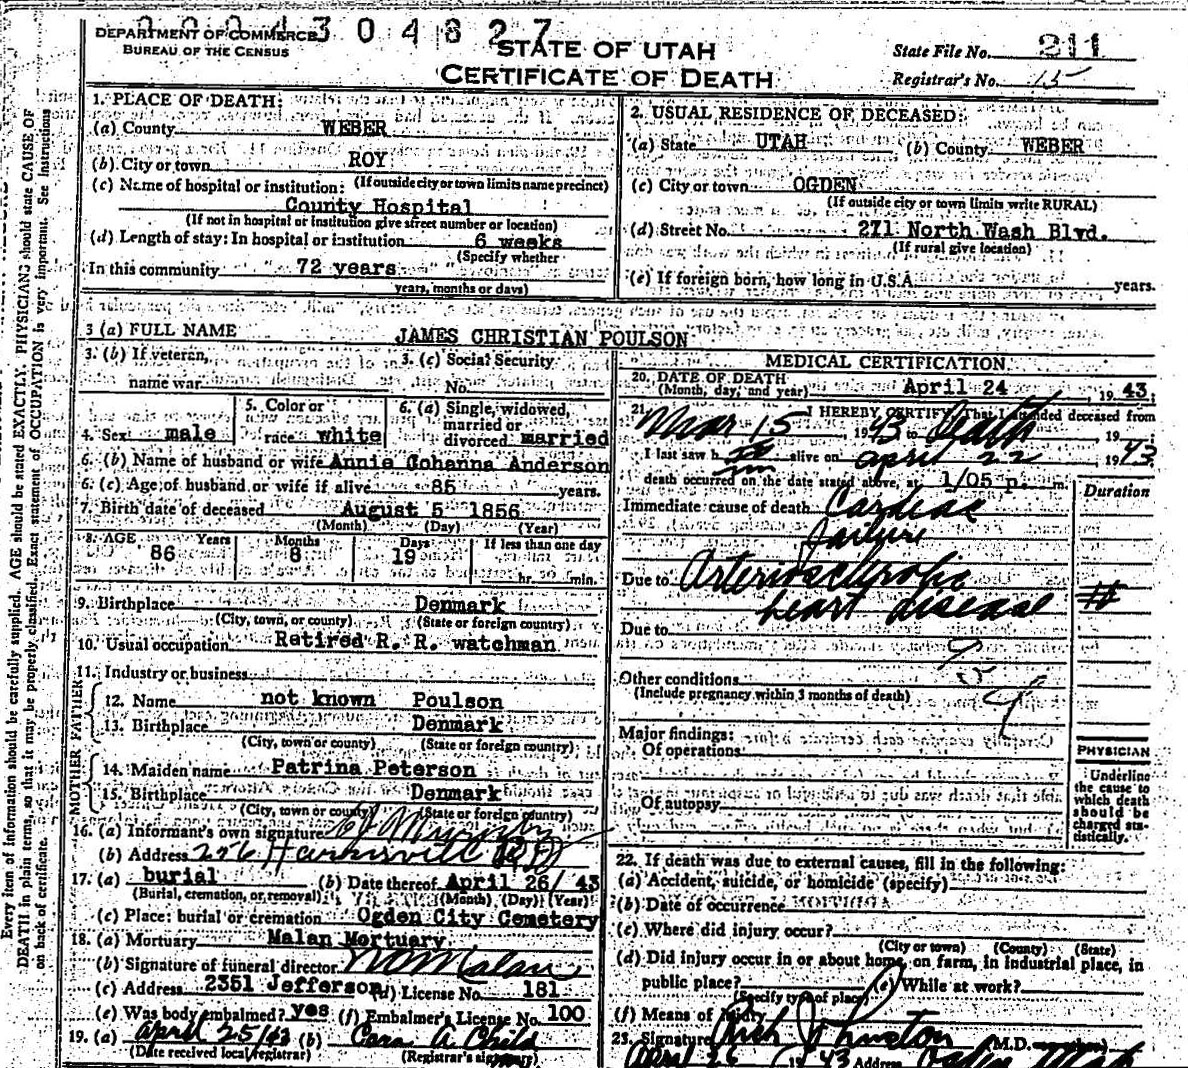 3 0 4 8 2 7
DEPARTMENT OF COMMERCE
BUREAU OF THE CENSUS
STATE OF UTAH
CERTIFICATE OF DEATH
State File No. 211
Registrar's No. 15
Every item of information should be carefully supplied. AGE should be stated EXACTLY. PHYSICIANS should state CAUSE OF
DEATH in plain terms, so that it may be properly classified. Exact statement of OCCUPATION is very important. See Instructions
on back of certificate.
1. PLACE OF DEATH:
(a) County WEBER
(b) City or town ROY
(c) Name of hospital or institution: (If outside city or town limits name precinct)
County Hospital
(If not in hospital or institution give street number or location)
(d) Length of stay: In hospital or institution 6 weeks
(Specify whether
In this community 72 years
years, months or days)
2. USUAL RESIDENCE OF DECEASED:
(a) State UTAH (b) County WEBER
(c) City or town OGDEN
(If outside city or town limits write RURAL)
(d) Street No. 271 North Wash Blvd.
(If rural give location)
(e) If foreign born, how long in U.S.A. years.
3 (a) FULL NAME JAMES CHRISTIAN POULSON
3. (b) If veteran, name war
3. (c) Social Security No.
4. Sex male
5. Color or race white
6. (a) Single, widowed, married or divorced married
6. (b) Name of husband or wife Annie Gohanna Anderson
6. (c) Age of husband or wife if alive 85 years.
7. Birth date of deceased August 5 1856
(Month) (Day) (Year)
8. AGE Years Months Days If less than one day
86 8 19 hr. min.
9. Birthplace Denmark
(City, town, or county) (State or foreign country)
10. Usual occupation Retired R. R. watchman
11. Industry or business
FATHER
12. Name not known Poulson
13. Birthplace Denmark
(City, town or county) (State or foreign country)
MOTHER
14. Maiden name Patrina Peterson
15. Birthplace Denmark
(City, town or county) (State or foreign country)
16. (a) Informant's own signature
(b) Address 256 Harrisville
17. (a) burial (b) Date thereof April 26/ 43
(Burial, cremation, or removal) (Month) (Day) (Year)
(c) Place: burial or cremation Ogden City Cemetery
18. (a) Mortuary Malan Mortuary
(b) Signature of funeral director Malan
(c) Address 2351 Jefferson (d) License No. 181
(e) Was body embalmed? yes (f) Embalmer's License No. 100
19. (a) April 25/43 (b) Cora A. Child
(Date received local registrar) (Registrar's signature)
MEDICAL CERTIFICATION
20. DATE OF DEATH
(Month, day, and year) April 24, 1943;
21. I HEREBY CERTIFY, That I attended deceased from
Mar 15, 1943 to Death, 19 ;
I last saw him alive on april 22 1943
death occurred on the date stated above, at 1/05 p. m.
Duration
Immediate cause of death Cardiac
failure
Due to Arteriosclerotic
heart disease
Due to
Other conditions
(Include pregnancy within 3 months of death)
Major findings:
Of operations
Of autopsy
PHYSICIAN
Underline
the cause to
which death
should be
charged sta-
tistically.
22. If death was due to external causes, fill in the following:
(a) Accident, suicide, or homicide (specify)
(b) Date of occurrence
(c) Where did injury occur?
(City or town) (County) (State)
(d) Did injury occur in or about home, on farm, in industrial place, in
public place? (e) While at work?
(Specify type of place)
(f) Means of Injury
23. Signature Rich Johnston (M.D.
April 26 1943 Address Ogden Utah